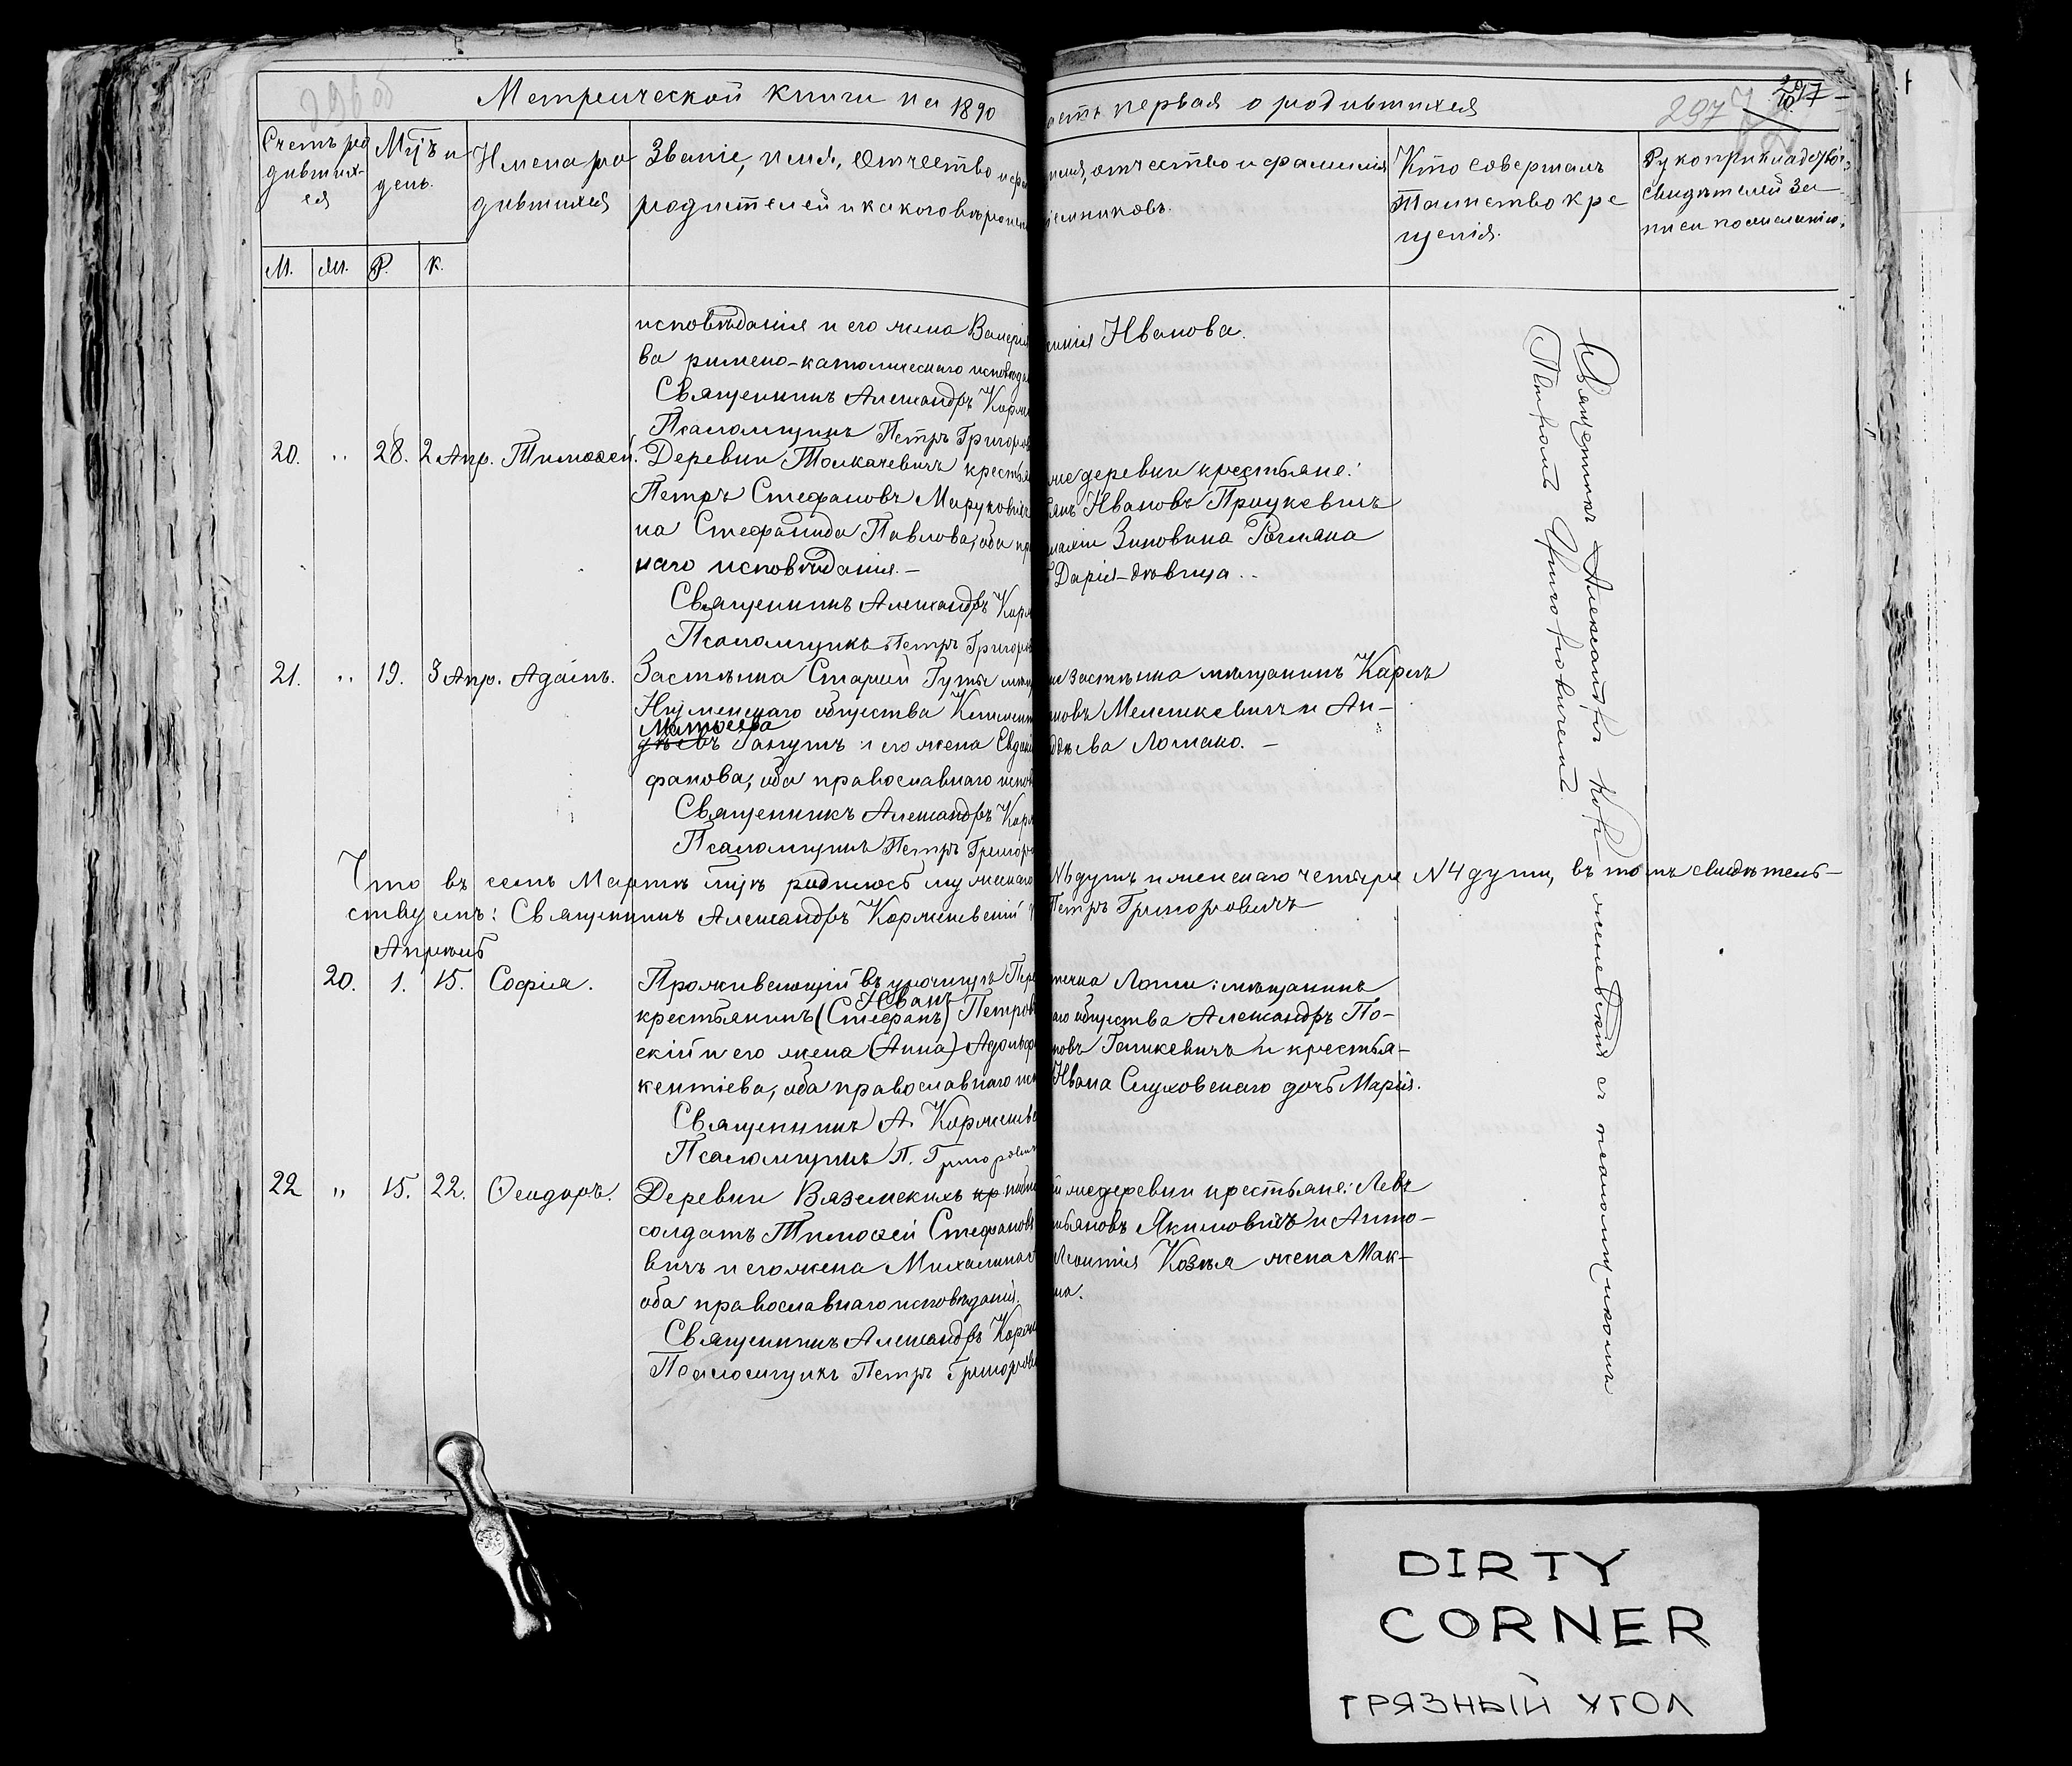 Метрической книги на 1890
асть первая о родившихся
297
Счетъ ро
дивших-
ся
Мцъ и
день.
Имена ро
дившихся
Званіе, имя, отчество и фа
родителей и какого вѣроисп
имя, отчество и фамилія
емниковъ.
Кто совершалъ
таинство кре
щенія.
Рукоприкладство
свидѣтелей за
писи по желанію.
М. Ж. Р. К.
исповѣданія и его жена Валерія
ва римско-католическаго исповѣда
Священникъ Александръ Корже
Псаломщикъ Петръ Григоров
енія Иванова.
20. " 28. 2 Апр. Тимоѳей. Деревни Толкачевичъ крестья
Петръ Стефановъ Маруковичъ
на Стефанида Павлова, оба пр
наго исповѣданія.-
Священникъ Александръ Корж
Псаломщикъ Петръ Григоров
же деревни крестьяне:
Ивановъ Прицкевичъ
Зиновина Романа
Дарія-дѣвица.-
21. " 19. 3 Апр. Адамъ. Застѣнка Старой Гуты мѣщ
Игуменскаго общества Климент
Матѳеева
Ганутъ и его жена Евдокі
фанова, оба православнаго испов
Священникъ Александръ Корж
Псаломщикъ Петръ Григоро
застѣнка мѣщанинъ Карлъ
новъ Мелешкевичъ и Ан-
ва Ломако. -
Что въ семъ Мартѣ мцѣ родилось мужескаго
№6 душъ и женскаго четыре №4 души, въ томъ свидѣтель-
ствуемъ: Священникъ Александръ Коржeневскій
Петръ Григоровичъ
Апрѣль
20. 1. 15. Софія. Проживающій въ урочищѣ Пере
Иванъ
крестьянинъ (Стефанъ) Петровъ
скій и его жена (Анна) Адольф
кентіева, оба православнаго исп
Священникъ А. Корженев
Псаломщикъ П. Григорович
мѣщанинъ
аго общества Александръ По-
новъ Галкевичъ и крестья-
Ивана Слуховскаго дочь Марія.
22 " 15. 22. Ѳеодоръ. Деревни Вяземскихъ
солдатъ Тимоѳей Стефановъ
вичъ и его жена Михалина
оба православнаго исповѣданія.
Священникъ Александръ Корже
Псаломщикъ Петръ Григоров
й же деревни крестьяне: Левъ
Якимовичъ и Анто-
Леонтія Козѣя жена Мак-
на.
Священникъ Александръ Корженевскій съ псаломщикомъ
Петромъ Григоровичемъ.
DIRTY
CORNER
ГРЯЗНЫЙ УГОЛ